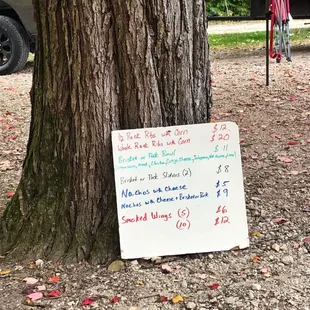 ½ Rack Ribs with Corn $12
Whole Rack Ribs with Corn $20
Brisket or Pork Bowl $11
Brisket or Pork Sliders (2) $8
Nachos with Cheese $5
Nachos with Cheese + Brisket or Pork $9
Smoked Wings (5) $6
(10) $12